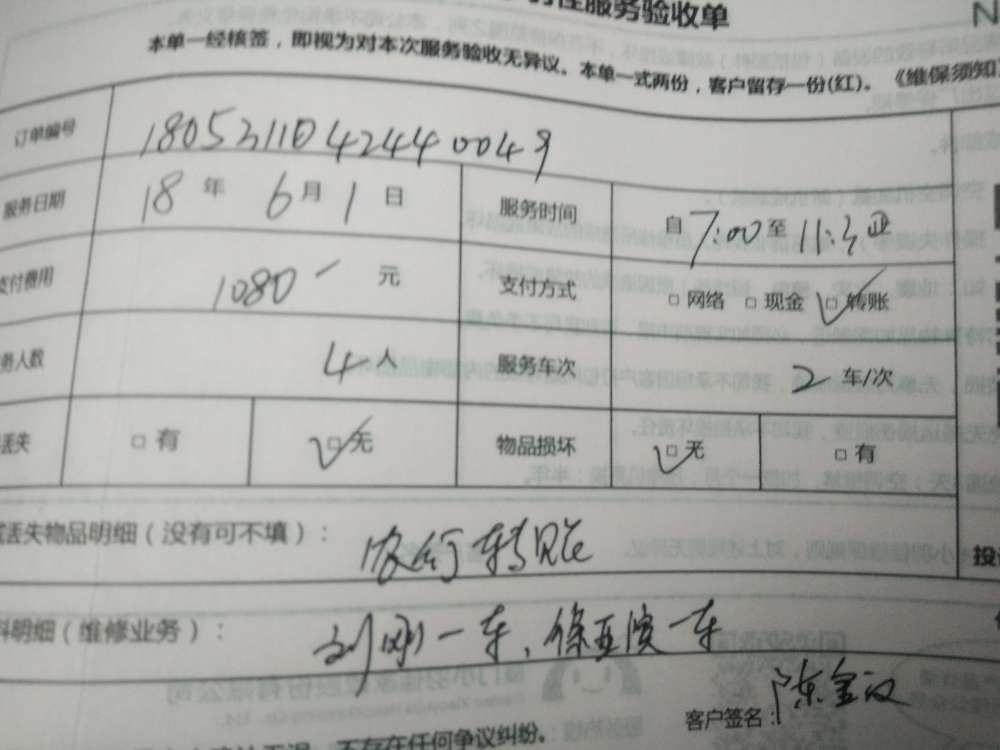 性服务验收单
本单一经核签，即视为对本次服务验收无异议。本单一式两份，客户留存一份(红)。《维保须知
订单编号 180531104244400049
服务日期 18 年 6 月 1 日 服务时间 自 7:00 至 11:30
支付费用 1080 元 支付方式 □ 网络 □ 现金 □ 转账
务人数 4 人 服务车次 2 车/次
丢失 □ 有 □ 无 物品损坏 □ 无 □ 有
丢失物品明细（没有可不填）： 农行转账
料明细（维修业务）： 刘刚一车，徐亚滨一车
客户签名：陈金汉
不存在任何争议纠纷。